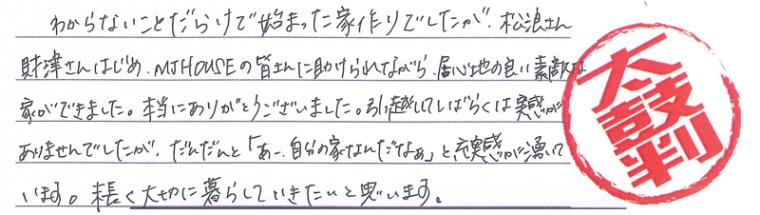 わからないことだらけで始まった家作りでしたが、松浪さん
財津さんはじめ、MJHOUSEの皆さんに助けられながら、居心地の良い素敵な
家ができました。本当にありがとうございました。引っ越してしばらくは実感が
ありませんでしたが、だんだんと「あー、自分の家なんだなぁ」と充実感が湧いて
います。末長く大切に暮らしていきたいと思います。
太鼓判